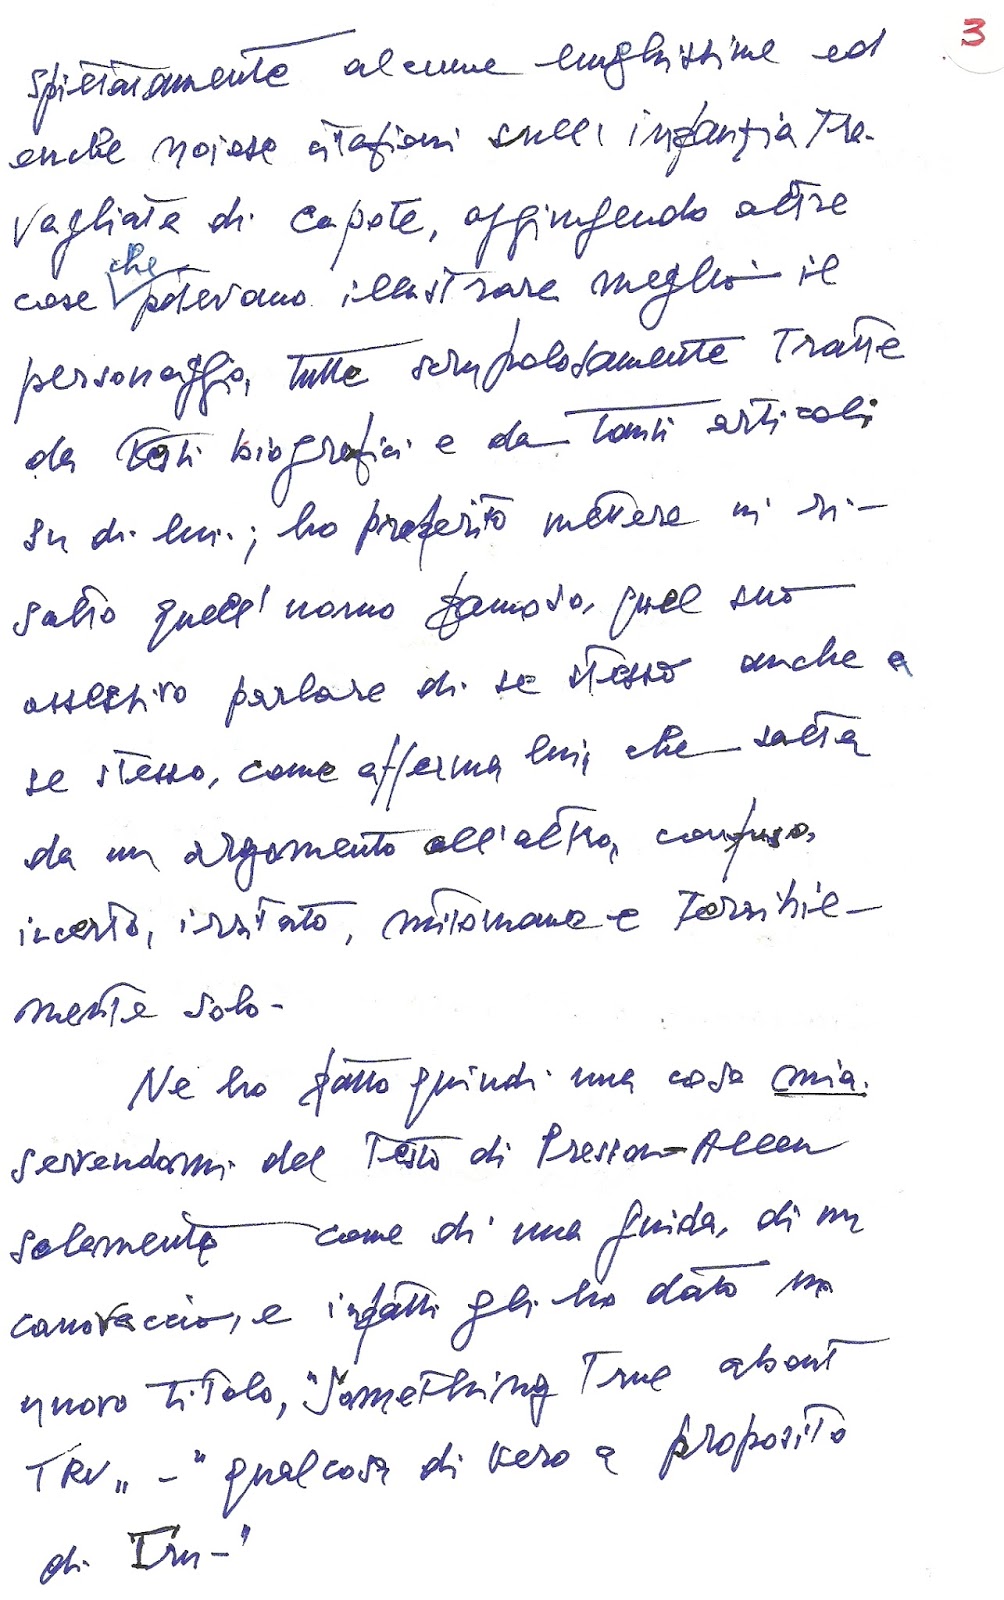 3
spietatamente alcune lunghissime ed
anche noiose citazioni sull'infanzia tra-
vagliata di Capote, aggiungendo altre
cose che potevano illustrare meglio il
personaggio, tutte scrupolosamente tratte
da testi biografici e da tanti articoli
su di lui; ho preferito mettere in ri-
salto quell'uomo famoso, quel suo
ossessivo parlare di se stesso anche a
se stesso, come afferma lui, che salta
da un argomento all'altro, confuso,
incerto, irritato, mitomane e terribil-
mente solo-
Ne ho fatto quindi una cosa mia.
servendomi del testo di Presson-Allen
solamente come di una guida, di un
canovaccio, e infatti gli ho dato un
nuovo titolo, "Something True about
TRU" - "qualcosa di vero a proposito
di Tru-"